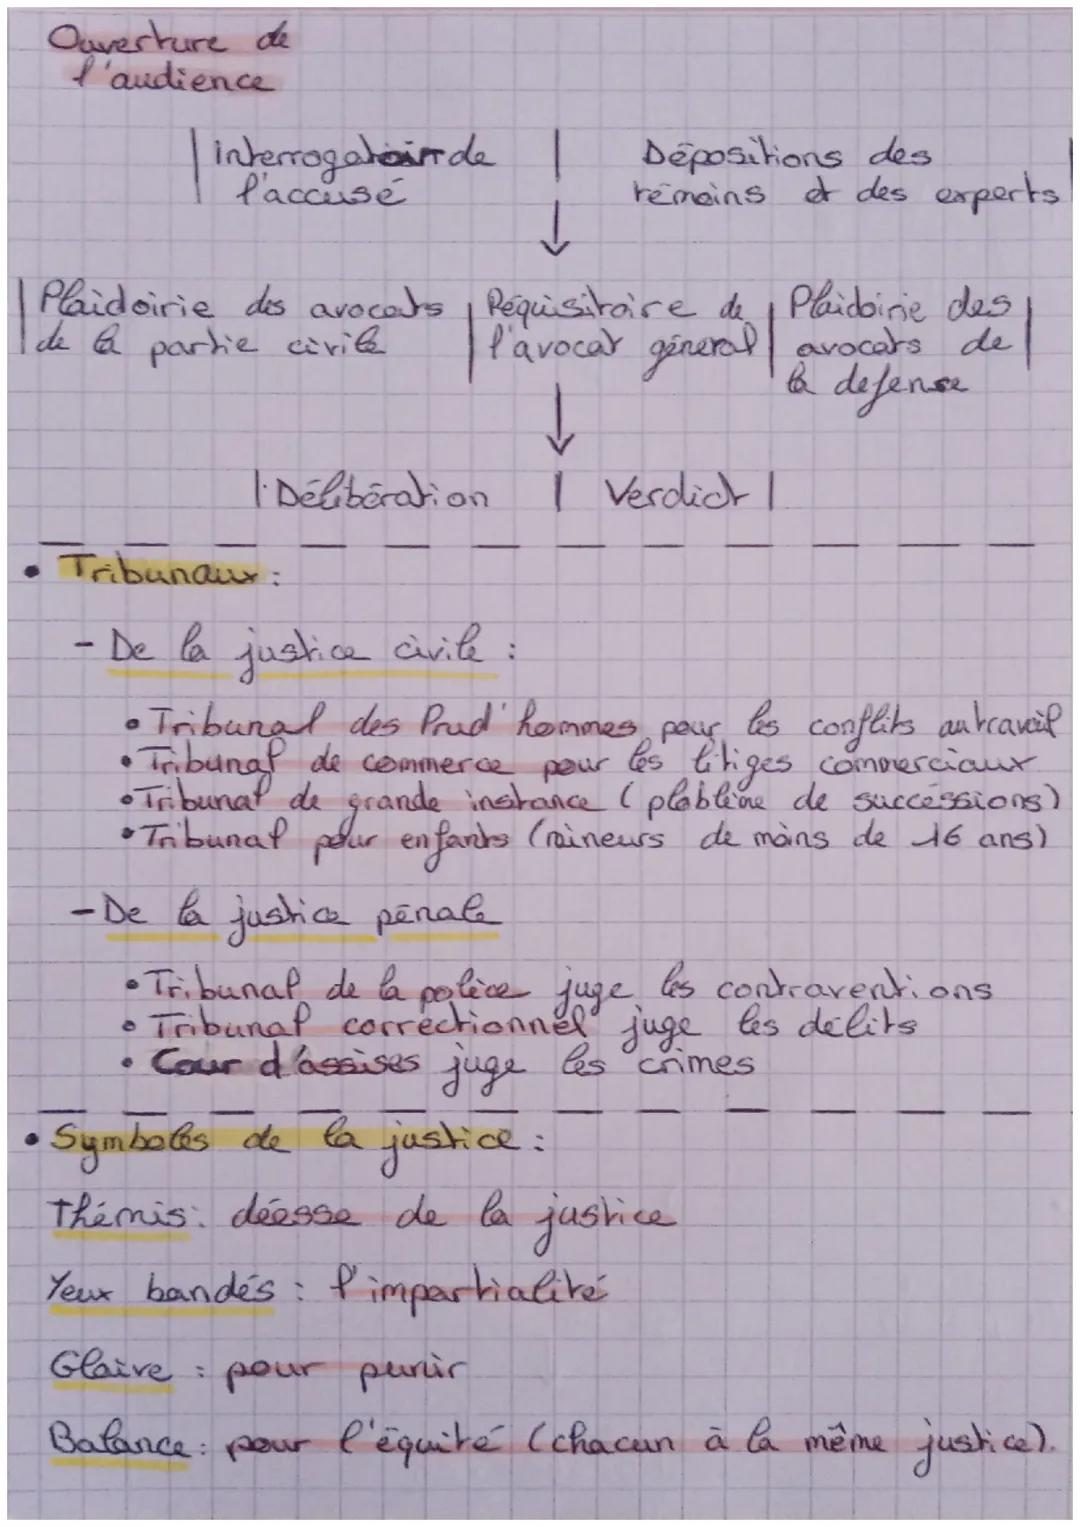 Ouverture de
l'audience
interrogatoire de
l'accusé
Dépositions des
témoins et des experts
Plaidoirie des avocats
de la partie civile
Réquisitoire de
l'avocat général
Plaidoirie des
avocats de
la défense
Délibération
Verdict
• Tribunaux :
- De la justice civile :
• Tribunal des Prud'hommes pour les conflits au travail
• Tribunal de commerce pour les litiges commerciaux
• Tribunal de grande instance (plablème de successions)
• Tribunal pour enfants (mineurs de moins de 16 ans)
- De la justice pénale
• Tribunal de la police juge les contraventions
• Tribunal correctionnel juge les délits
• Cour d'assises juge les crimes
• Symboles de la justice :
Thémis : déesse de la justice
Yeux bandés : l'impartialité
Glaive : pour punir
Balance : pour l'équité (chacun à la même justice).